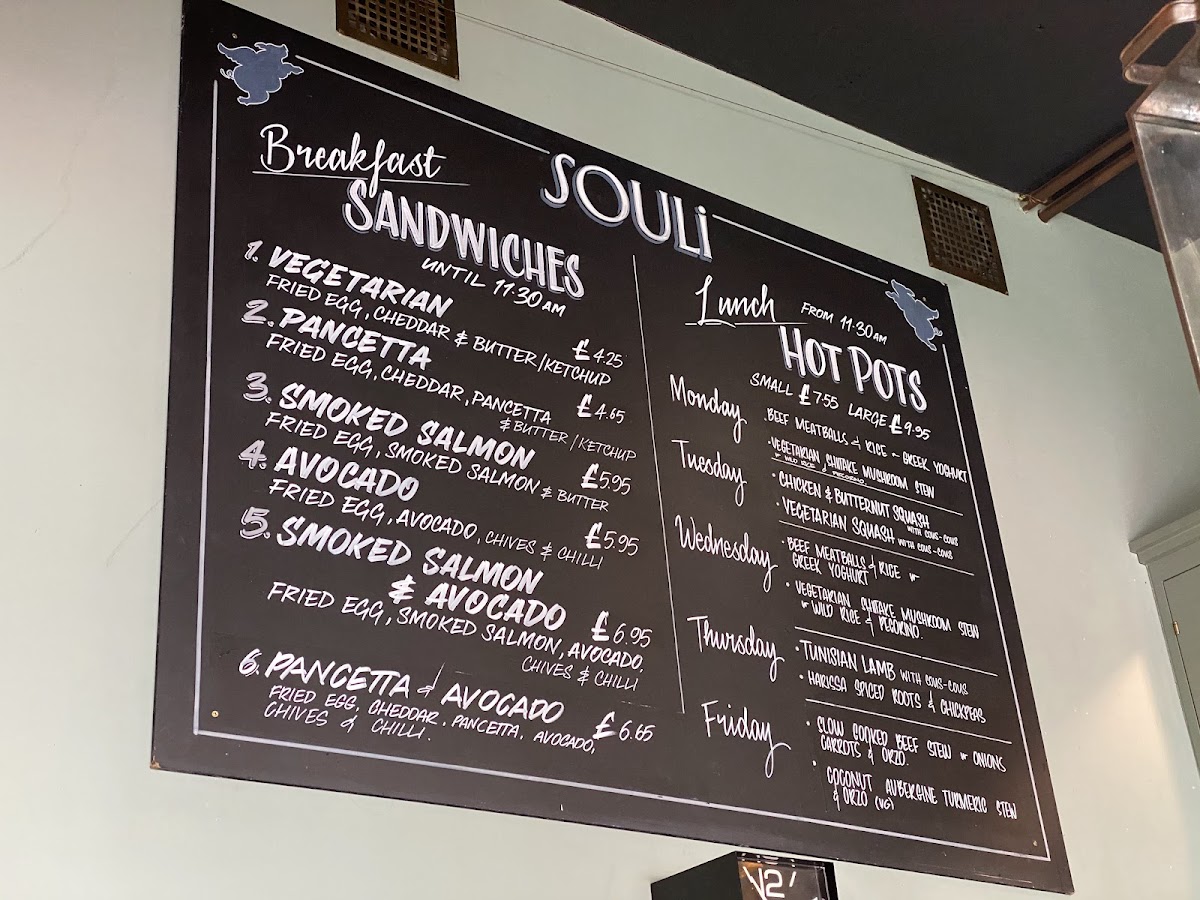 SOULi
Breakfast
SANDWICHES
UNTIL 11·30 AM
1. VEGETARIAN
FRIED EGG, CHEDDAR & BUTTER/KETCHUP £4.25
2. PANCETTA
FRIED EGG, CHEDDAR, PANCETTA £4.65
& BUTTER/KETCHUP
3. SMOKED SALMON
FRIED EGG, SMOKED SALMON & BUTTER £5.95
4. AVOCADO
FRIED EGG, AVOCADO, CHIVES & CHILLI £5.95
5. SMOKED SALMON
& AVOCADO £6.95
FRIED EGG, SMOKED SALMON, AVOCADO,
CHIVES & CHILLI
6. PANCETTA & AVOCADO £6.65
FRIED EGG, CHEDDAR, PANCETTA, AVOCADO,
CHIVES & CHILLI.
Lunch FROM 11·30 AM
HOT POTS
SMALL £7.55 LARGE £9.95
Monday
·BEEF MEATBALLS & RICE ~ GREEK YOGHURT
·VEGETARIAN SHITAKE MUSHROOM STEW
W WILD RICE & PECORINO
Tuesday
·CHICKEN & BUTTERNUT SQUASH
WITH COUS-COUS
·VEGETARIAN SQUASH WITH COUS-COUS
Wednesday
·BEEF MEATBALLS & RICE W
GREEK YOGHURT
·VEGETARIAN SHITAKE MUSHROOM STEW
W WILD RICE & PECORINO
Thursday
·TUNISIAN LAMB WITH COUS-COUS
·HARISSA SPICED ROOTS & CHICKPEAS
Friday
·SLOW COOKED BEEF STEW W ONIONS
CARROTS & ORZO.
·COCONUT AUBERGINE TURMERIC STEW
& ORZO (VG)
V2